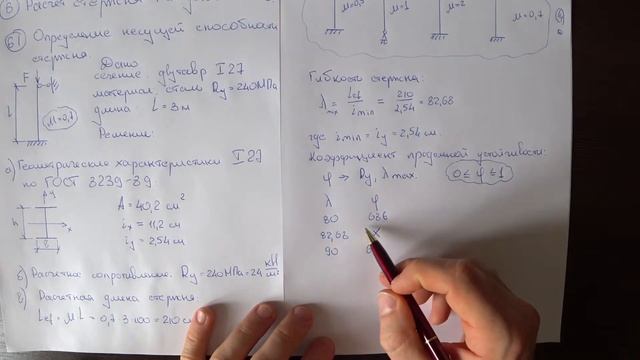 б) Расчет стержня на
б1) Определение несущей способности
стержня.
Дано
сечение: двутавр I 27
материал: сталь Ry = 240 МПа
длина: L = 3 м
Решение:
F
l
μ=0,7
а) Геометрические характеристики I 27
по ГОСТ 8239-89:
y
h
x
A = 40,2 см²
ix = 11,2 см
iy = 2,54 см
б) Расчетное сопротивление. Ry = 240 МПа = 24 кН/см²
в) Расчетная длина стержня:
Lef = μL = 0,7·3·100 = 210 см
μ=1
μ=2
μ=0,7
Гибкость стержня:
λmax = Lef/imin = 210/2,54 = 82,68
где imin = iy = 2,54 см.
Коэффициент продольной устойчивости:
φ → Ry, λmax. 0 ≤ φ ≤ 1
λ φ
80 686
82,68 X
90